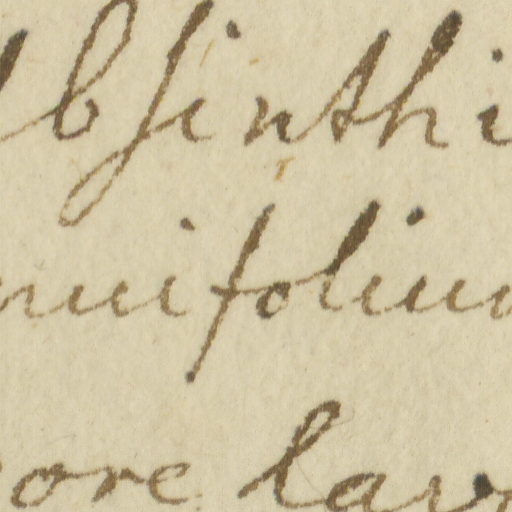 bsinthi
nuifoliu
ore lav